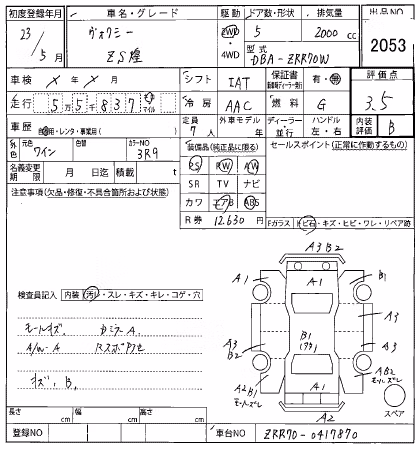 初度登録年月 車名・グレード 駆動 ドア数・形状 排気量 出品NO
23 ヴォクシー 2WD 5 2000 cc
5月 ZS煌 4WD 型式 DBA-ZRR70W 2053
車検 X年 X月 シフト IAT 保証書 有・無 評価点
走行 5万5千837 マイル 冷房 AAC 燃料 G 3.5
車歴 自家用・レンタ・事業用( ) 定員 7人 外車モデル 年 ディーラー 並行 ハンドル 左・右 内装評価 B
外色 元色 ワイン 色替 カラーNO 3R9 装備品(純正品に限る) セールスポイント(正常に作動するもの)
名義変更期限 月 日迄 積載 t PS PW AW
注意事項(欠品・修復・不具合箇所および状態) SR TV ナビ
カワ エアB ABS
R券 12,630円 Fガラス トビ石・キズ・ヒビ・ワレ・リペア跡
検査員記入 内装 汚れ・スレ・キズ・キレ・コゲ・穴
A3 B2
A1 A1 B1
A3 B2 B1 A3
A3
A2 B1 A1 A B2
A2
モールキズ カミラーA
A/W-A
キズ、B,
スペア
長さ cm 幅 cm 高さ cm
登録NO 車台NO ZRR70-0417870